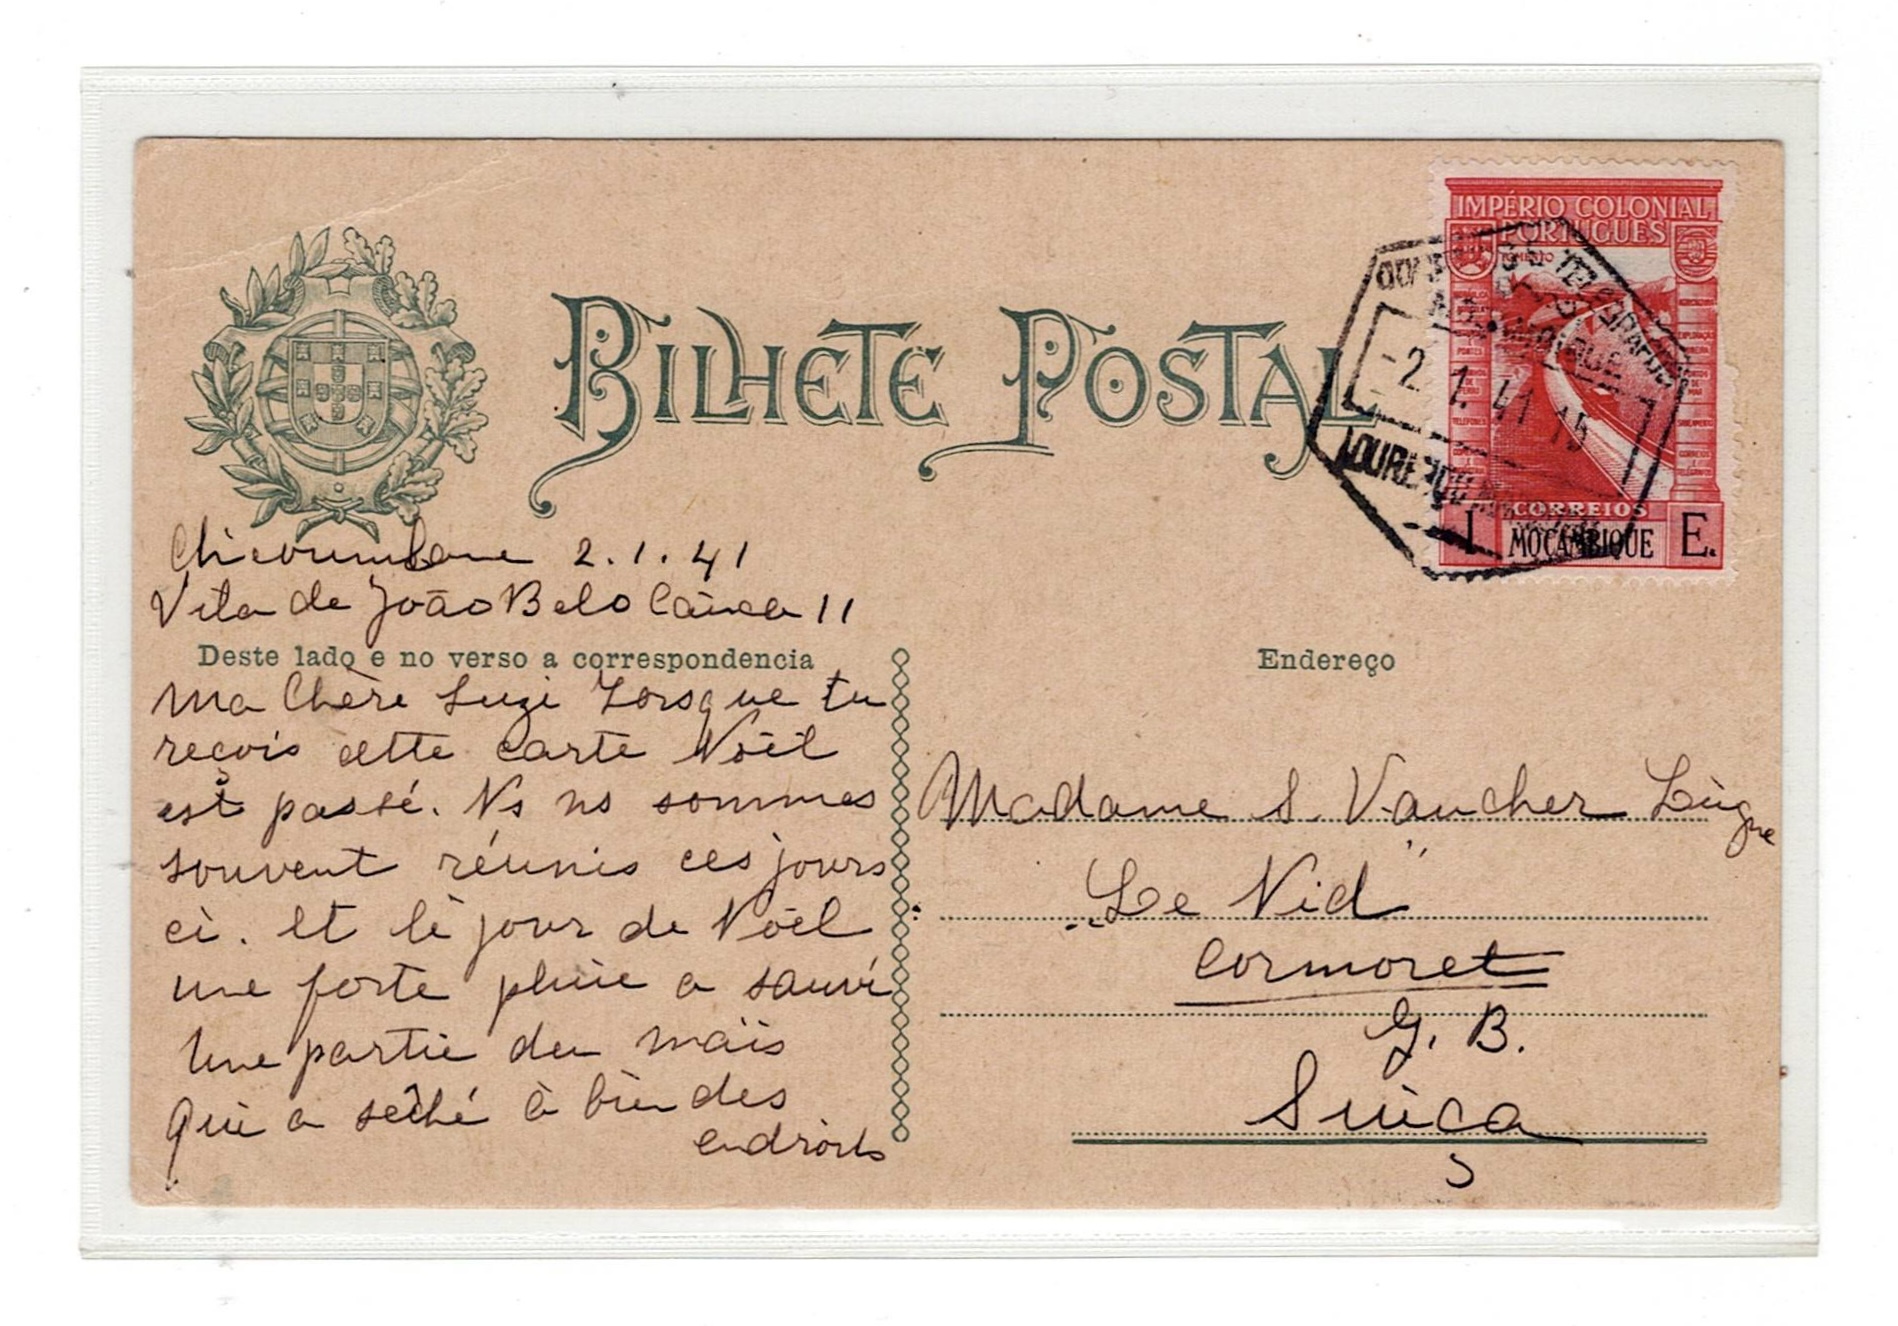 BILHETE POSTAL
IMPÉRIO COLONIAL
PORTUGUÊS
FOMENTO
CORREIOS
1 MOÇAMBIQUE E.
TELEGRAFOS
MOÇAMBIQUE
-2. 1. 41 15
LOURENÇO
Chicoumbane 2.1.41
Vila de João Belo Caixa 11
Deste lado e no verso a correspondencia
Ma Chère Suzi Lorsque tu
reçois cette carte Noël
est passé. Ns ns sommes
souvent réunis ces jours
ci. Et le jour de Noël
une forte pluie a sauvé
une partie du maïs
qui a séché à bien des
endroits
Endereço
Madame S. Vaucher
„Le Nid"
Cormoret
J. B.
Suiça